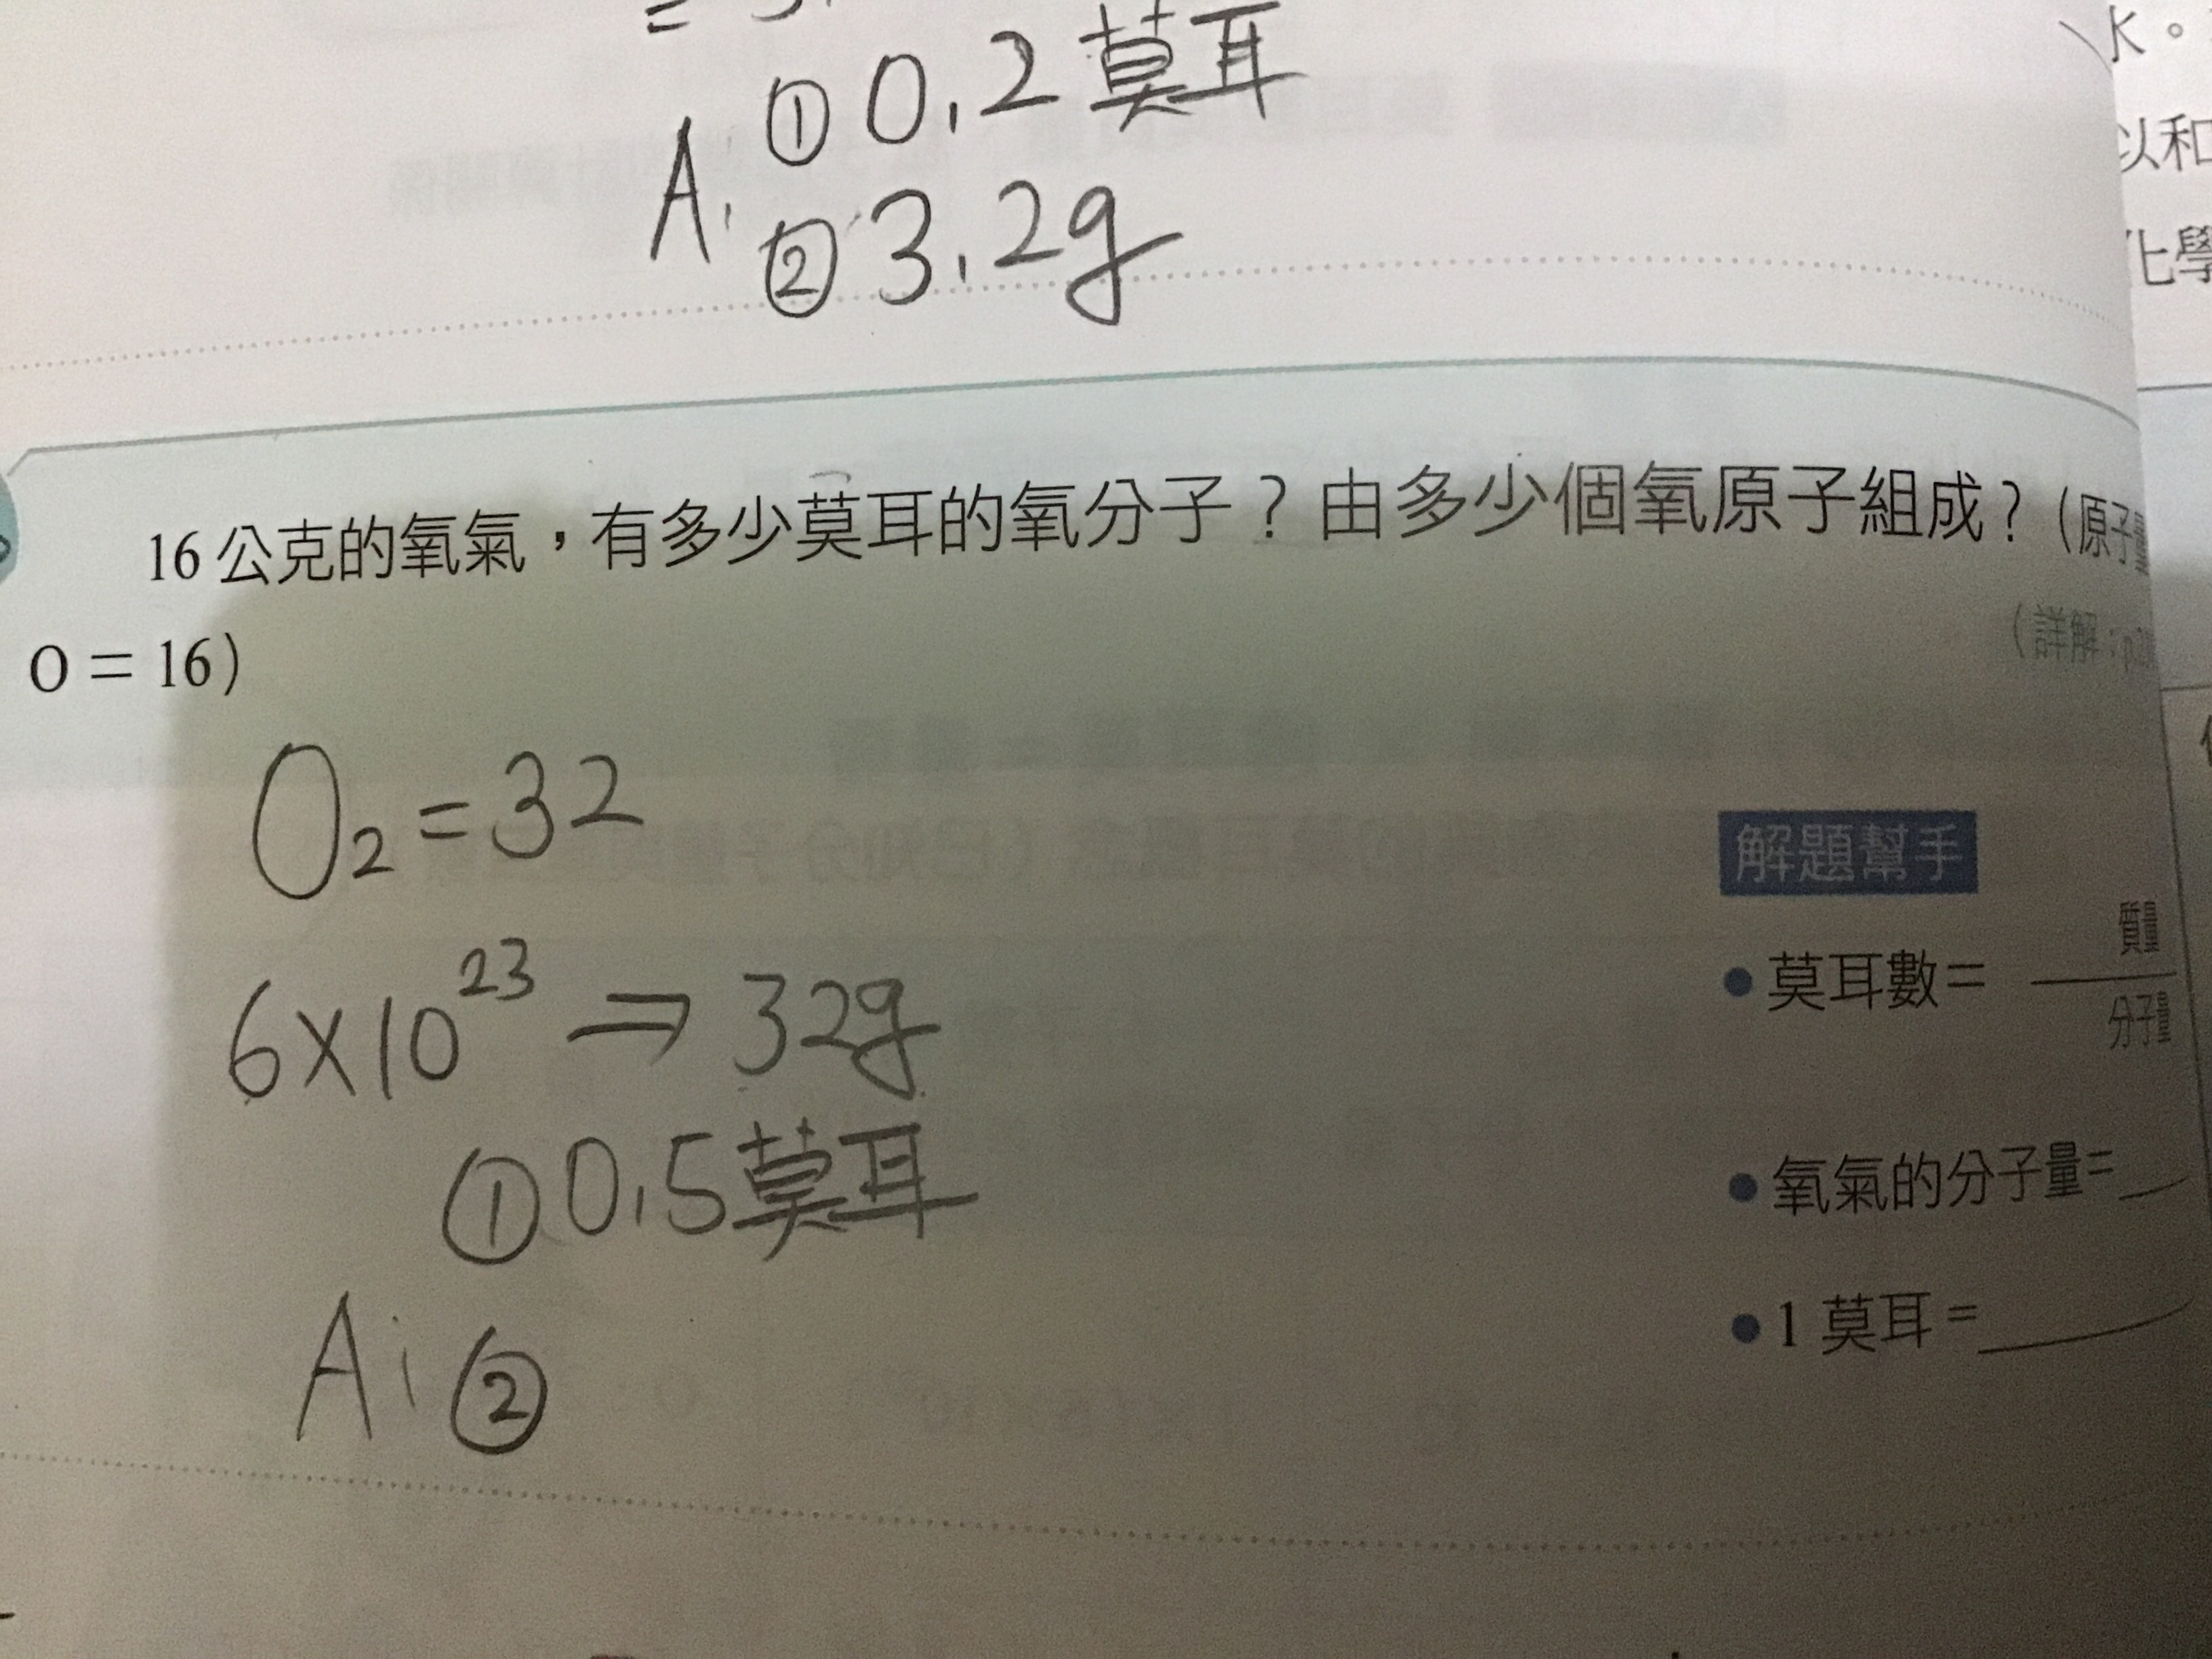 ① 0.2莫耳
A. ② 3.2g
水。
以和
化學
16公克的氧氣，有多少莫耳的氧分子？由多少個氧原子組成？(原子量
O＝16）
（詳解：
O₂=32
6×10²³ ⇒ 32g
① 0.5莫耳
A: ②
解題幫手
• 莫耳數＝ 質量
分子量
• 氧氣的分子量=
• 1 莫耳=